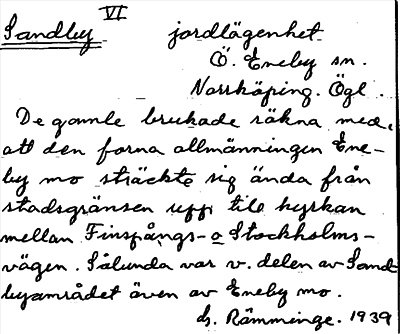 VI
Sandby jordlägenhet
Ö. Eneby sn.
Norrköping. Ögl.
De gamle brukade räkna med,
att den forna allmänningen Ene-
by mo sträckte sig ända från
stadsgränsen upp till kyrkan
mellan Finspångs- o Stockholms-
vägen. Sålunda var v. delen av Sand
byområdet även av Eneby mo.
Rämminge. 1939